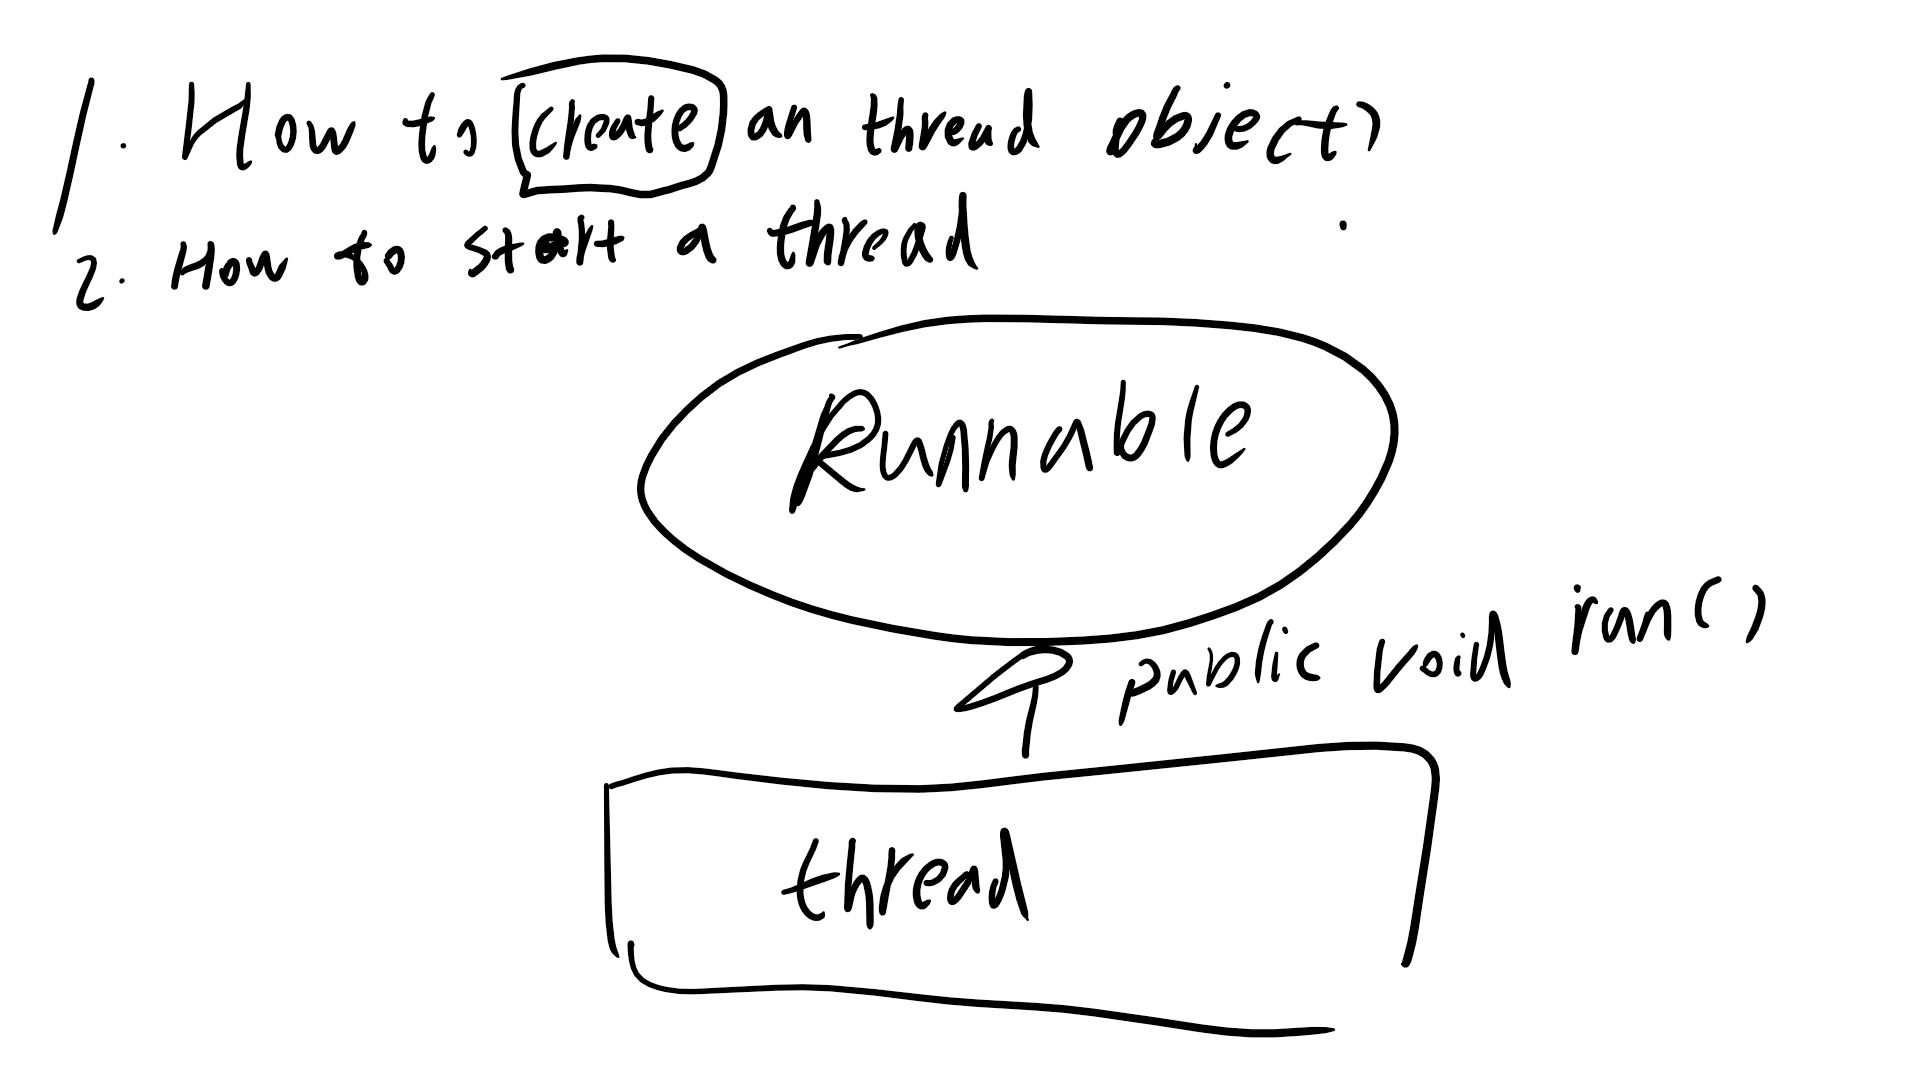 1. How to create an thread object?
2. How to start a thread
Runnable
public void run()
thread